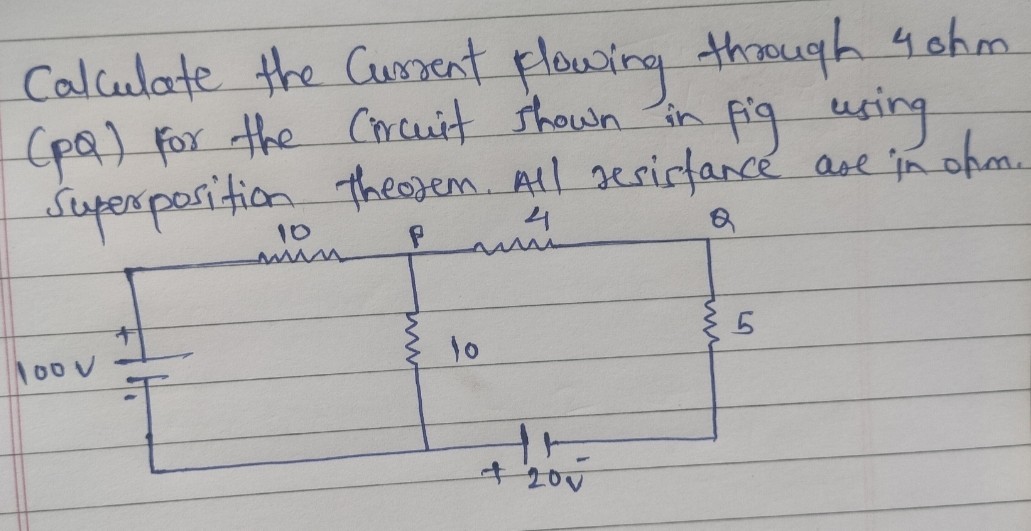 Calculate the Current flowing through 4 ohm
(PQ) for the Circuit shown in fig using
Superposition theorem. All resistance are in ohm.
10 P 4 Q
+ 100V -
10
5
+ 20V -